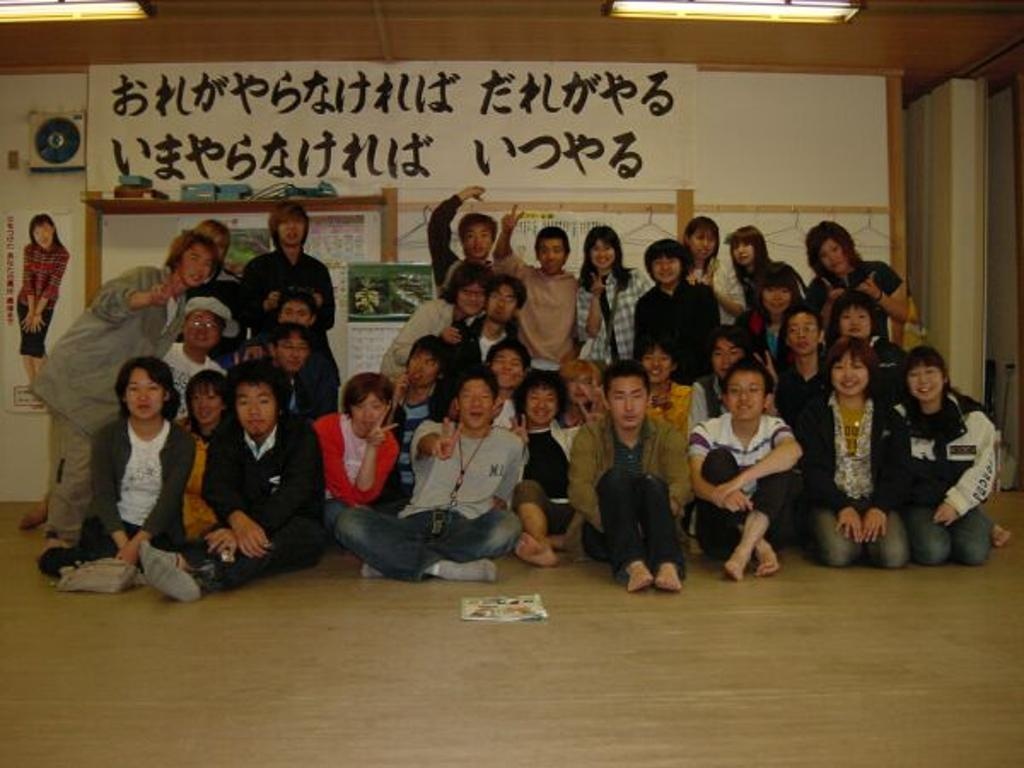 おれがやらなければ だれがやる
いまやらなければ いつやる